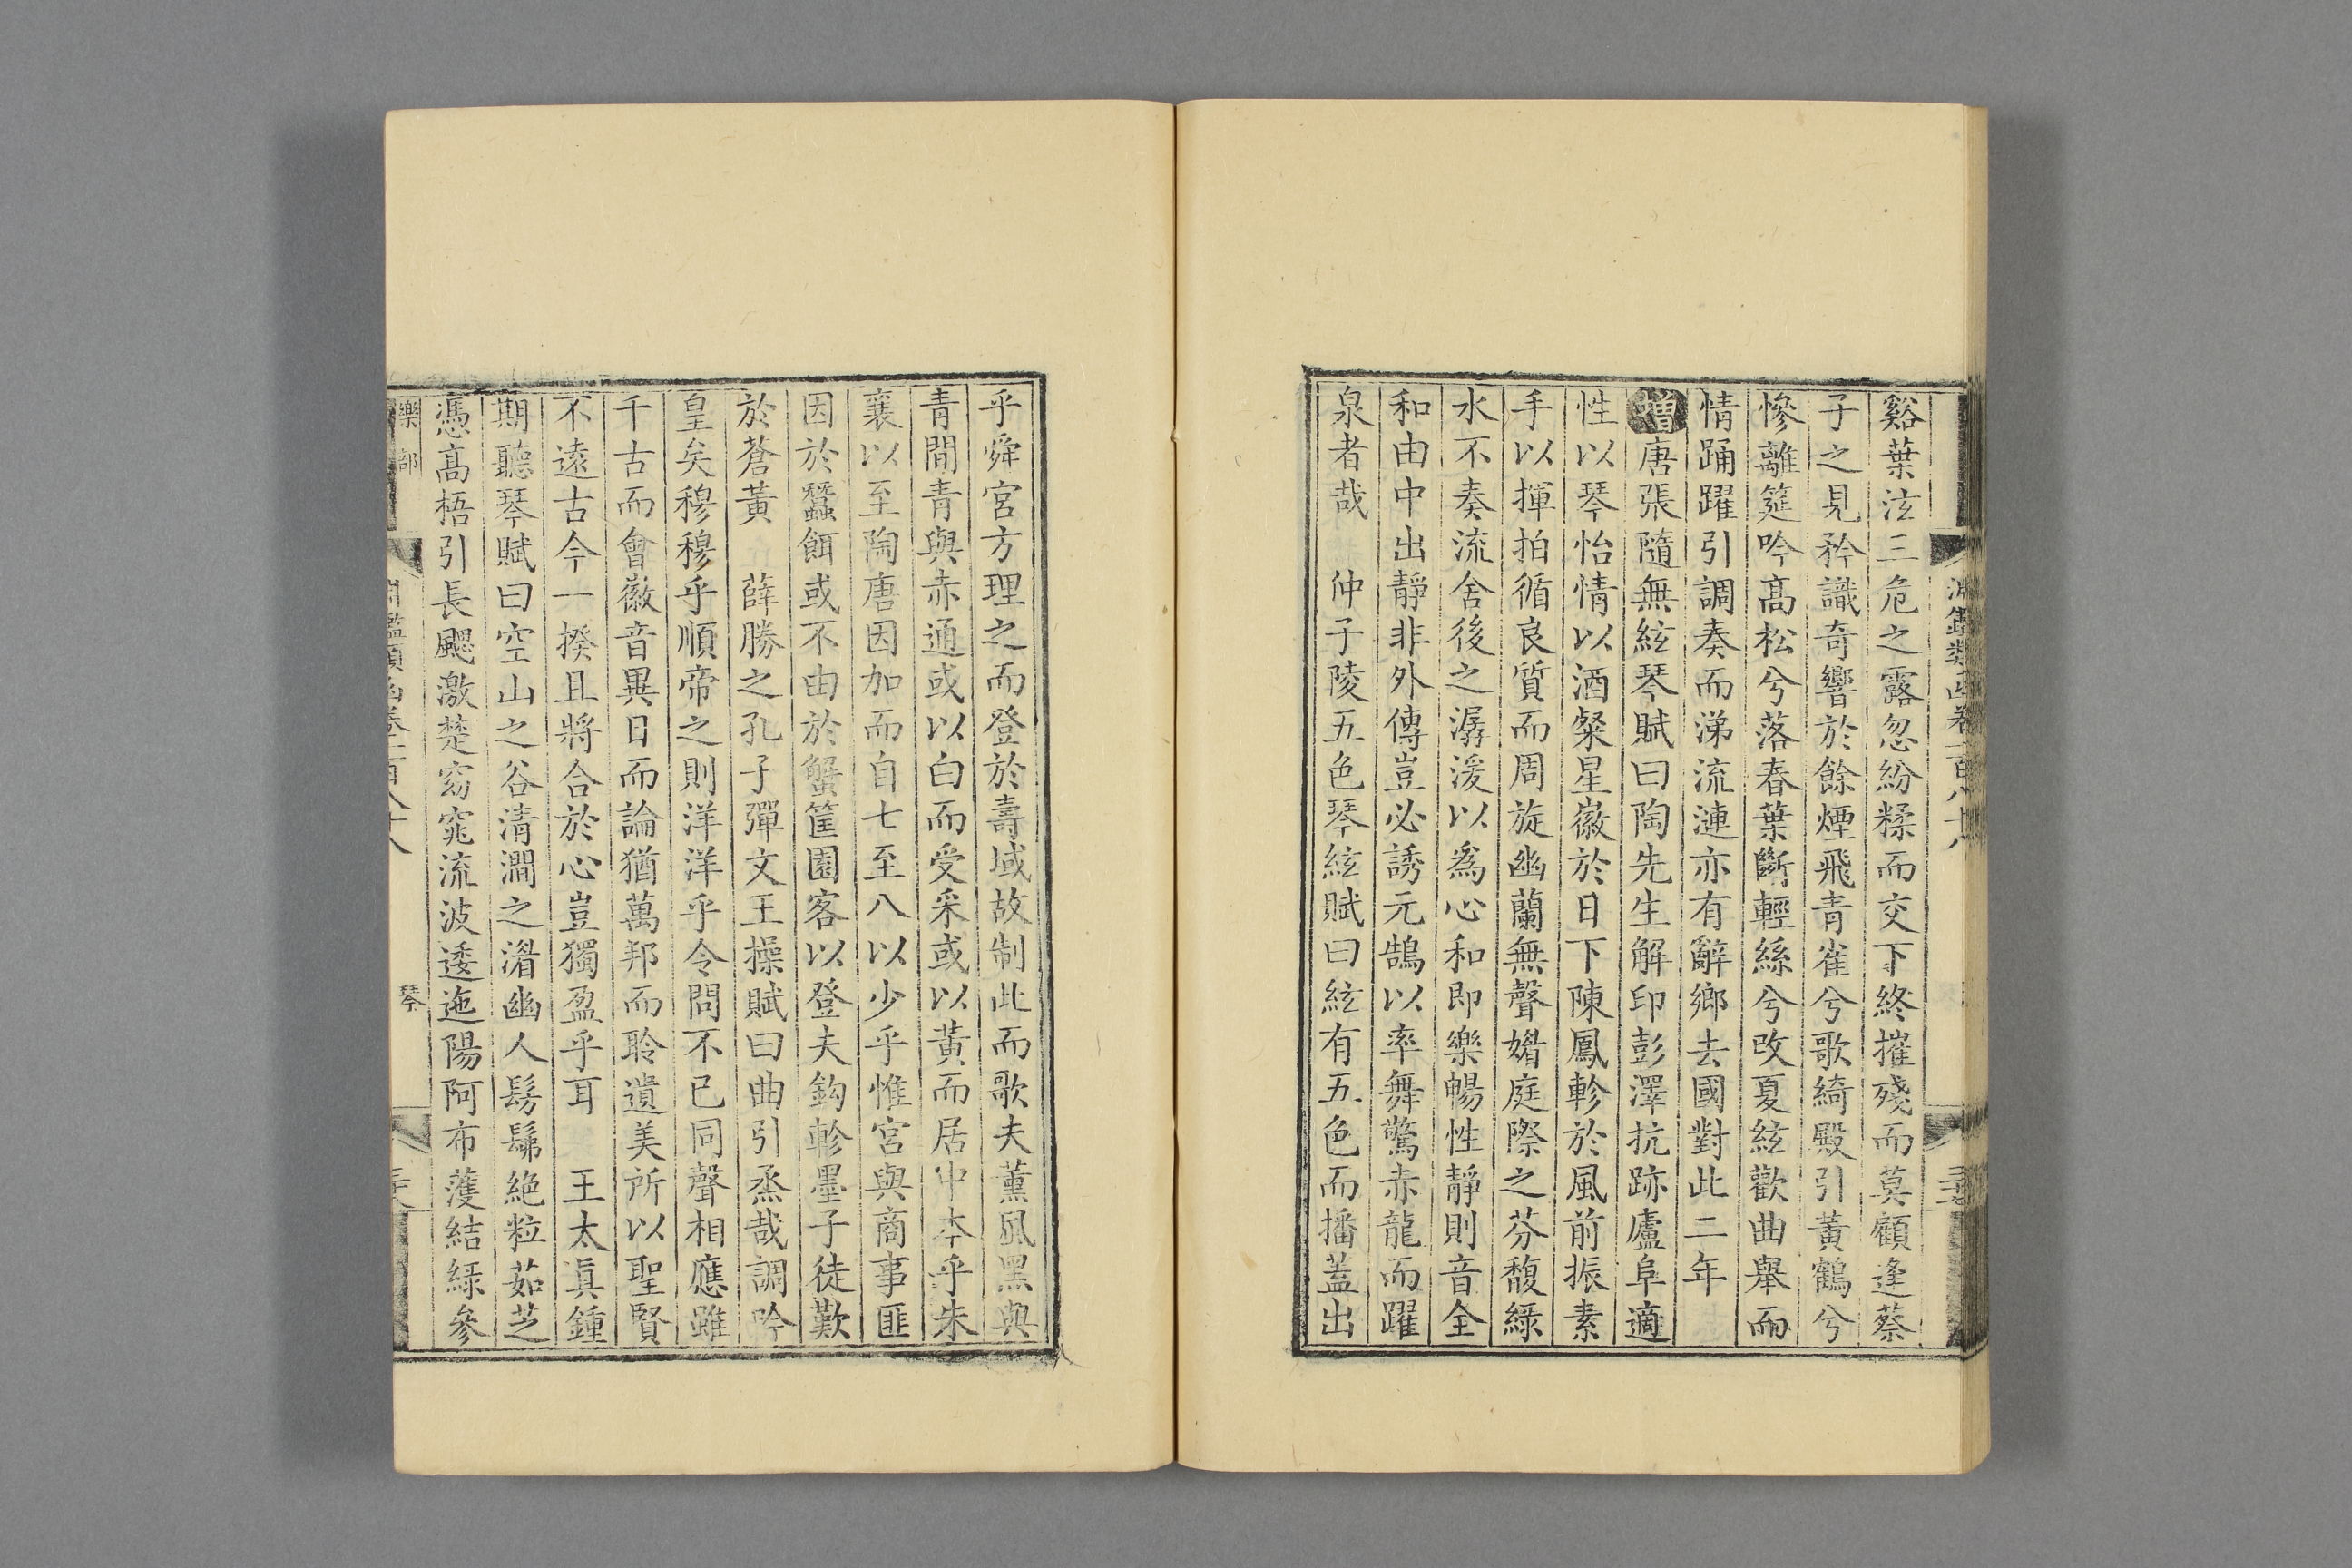 淵鑑類函卷一百八十八
谿葉泫三危之露忽紛糅而交下終摧殘而莫顧逢蔡
子之見矜識奇響於餘煙飛青雀兮歌綺殿引黃鶴兮
慘離筵吟高松兮落春葉斷輕絲兮改夏絃歡曲舉而
情踊躍引調奏而涕流漣亦有辭鄉去國對此二年
增唐張隨無絃琴賦曰陶先生解印彭澤抗跡廬阜適
性以琴怡情以酒粲星徽於日下陳鳳軫於風前振素
手以揮拍循良質而周旋幽蘭無聲媚庭際之芬馥綠
水不奏流舍後之潺湲以為心和即樂暢性靜則音全
和由中出靜非外傳豈必誘元鵠以率舞驚赤龍而躍
泉者哉 仲子陵五色琴絃賦曰絃有五色而播蓋出
乎舜宮方理之而登於壽域故制此而歌夫薰風黑與
青間青與赤通或以白而受采或以黃而居中本乎朱
襄以至陶唐因加而自七至八以少乎惟宮與商事匪
因於蠶餌或不由於蟹筐園客以登夫鈎軫墨子徒歎
於蒼黃 薛勝之孔子彈文王操賦曰曲引烝哉調吟
皇矣穆穆乎順帝之則洋洋乎令問不已同聲相應雖
千古而會徽音異日而論猶萬邦而聆遺美所以聖賢
不遠古今一揆且將合於心豈獨盈乎耳 王太真鍾
期聽琴賦曰空山之谷清澗之潘幽人髣髴絶粒茹芝
憑高梧引長颸激楚窈窕流波逶迤陽阿布濩結綠參
樂部 淵鑑類函卷一百八十八 琴